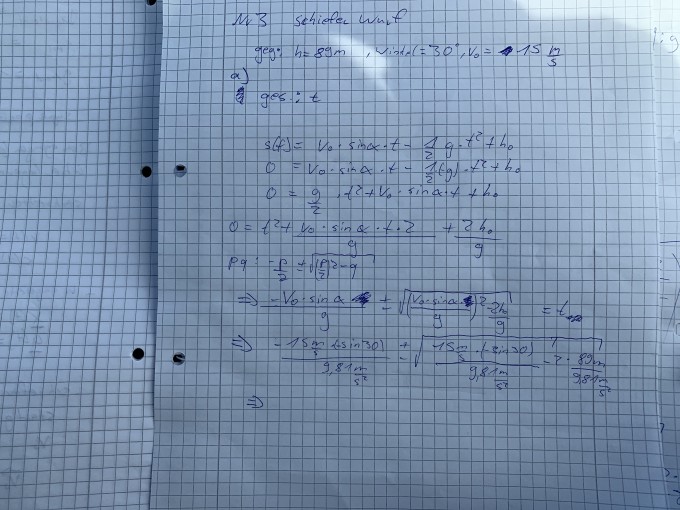 Nr 3 schiefer Wurf
geg: h = 89m, winkel = 30°, v₀ = 15 m/s
a)
ges.: t
s(t) = v₀ · sinα · t - 1/2 g · t² + h₀
0 = v₀ · sinα · t - 1/2 (g) · t² + h₀
0 = g/2 · t² + v₀ · sinα · t + h₀
0 = t² + (v₀ · sinα · t · 2)/g + 2h₀/g
pq: -p/2 ± √((p/2)² - q)
=> (-v₀ · sinα)/g ± √(((v₀ · sinα)/g)² - 2h/g) = t
=> (-15 m/s · (-sin30))/(9,81 m/s²) ± √((15 m/s · (-sin30))/(9,81 m/s²) - 2 · 89m/(9,81 m/s²))
=>